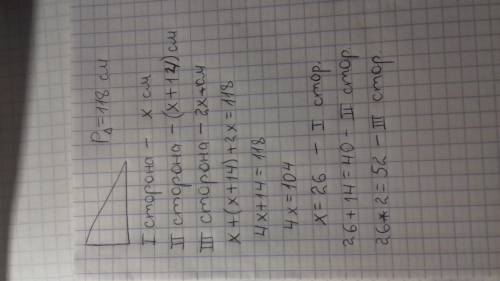 P△=118 см
I сторона - x см
II сторона - (x+14) см
III сторона - 2x см
x+(x+14)+2x=118
4x+14=118
4x=104
x=26 - I стор.
26+14=40 - II стор.
26*2=52 - III стор.